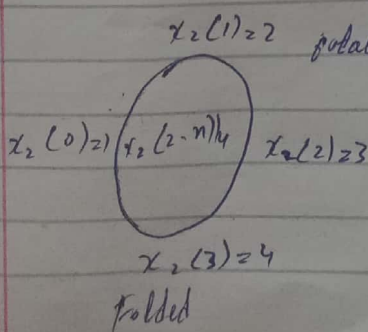 x₂(1)=2
x₂(0)=1 x₂(2-n)|₄ x₂(2)=3
x₂(3)=4
Folded